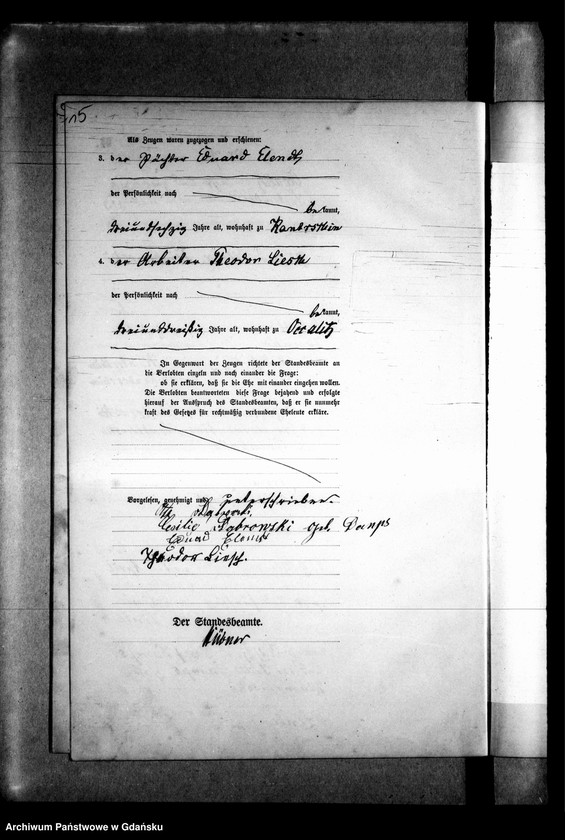 15
Als Zeugen waren zugezogen und erschienen:
3. der Pächter Eduard
der Persönlichkeit nach
bekannt,
dreiundsechzig Jahre alt, wohnhaft zu
4. der Arbeiter Theodor Liesk
der Persönlichkeit nach
bekannt,
dreiunddreißig Jahre alt, wohnhaft zu Occalitz
In Gegenwart der Zeugen richtete der Standesbeamte an
die Verlobten einzeln und nach einander die Frage:
ob sie erklären, daß sie die Ehe mit einander eingehen wollen.
Die Verlobten beantworteten diese Frage bejahend und erfolgte
hierauf der Ausspruch des Standesbeamten, daß er sie nunmehr
kraft des Gesetzes für rechtmäßig verbundene Eheleute erkläre.
Vorgelesen, genehmigt und unterschrieben.
Cecilie Dąbrowski geb.
Eduard
Theodor Liesk.
Der Standesbeamte.
Archiwum Państwowe w Gdańsku